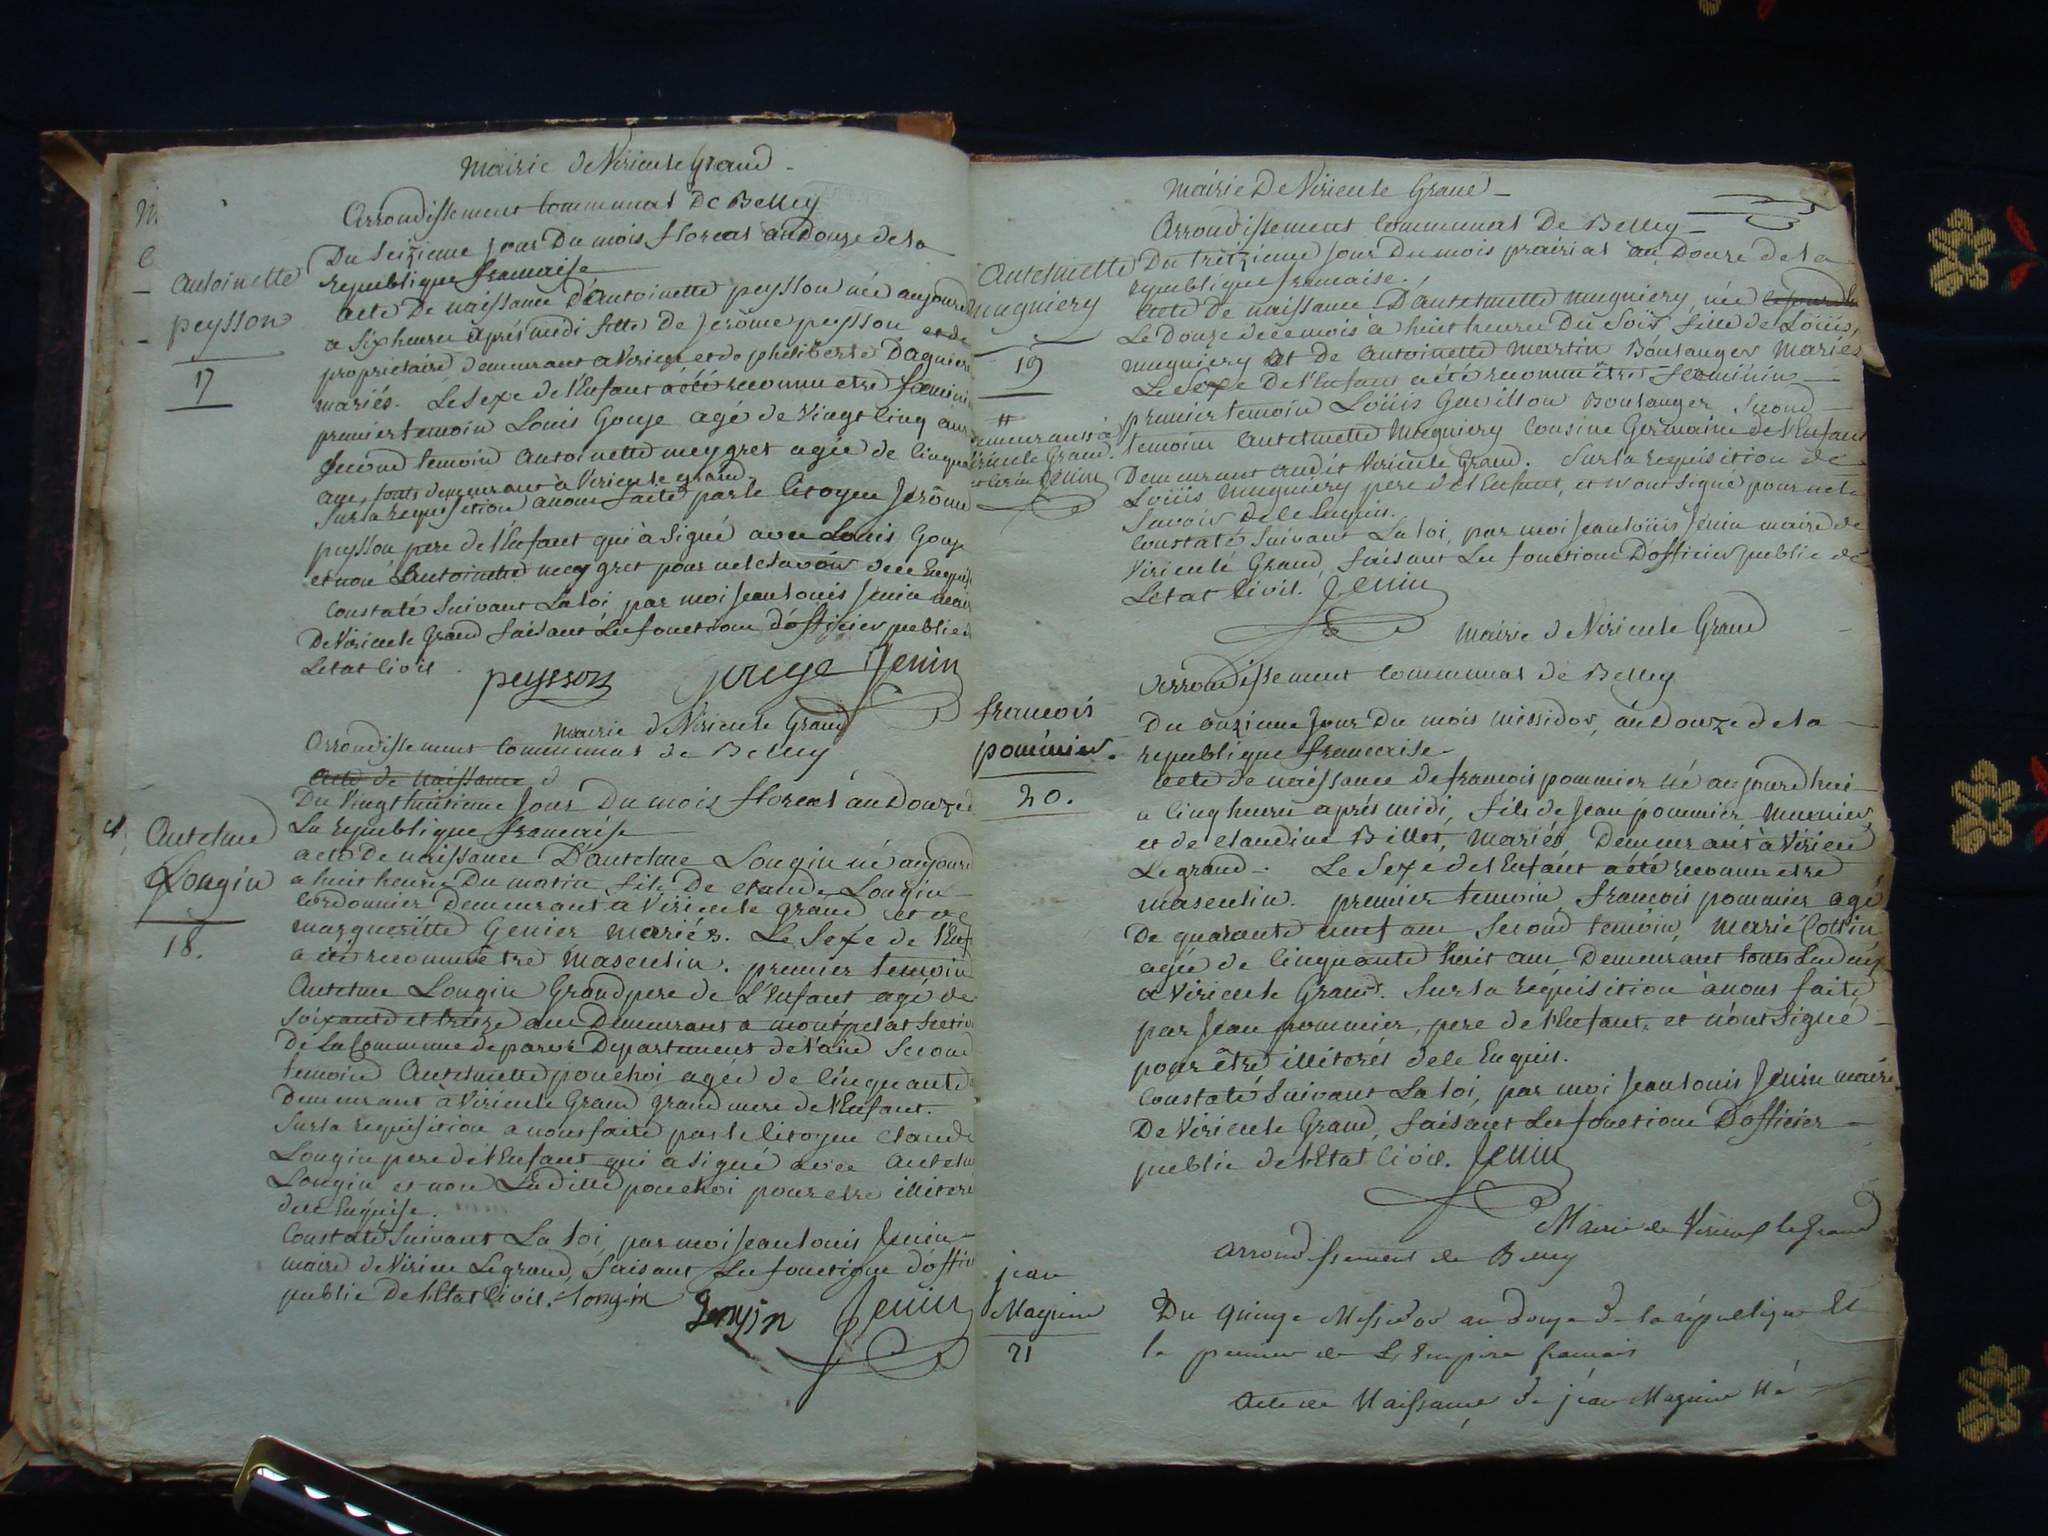 Mairie de Virieu le Grand
Arrondissement Communal De Belley
Du Seizieme Jour Du mois floreal an Douze de la
republique francaise
Antoinette
peysson
17
acte De naissance d'antoinette peysson née aujourd
a Six heures aprés midi fille De Jerôme peysson et de
propriétaire demeurant a Virieu et de philiberte Dagnier
mariés. Le Sexe de l'Enfant a été reconnu etre feminin
premier temoin Louis Gouje agé de Vingt Cinq ans
Second temoin antoinette meygret agée de Cinqua
ans, touts demeurant à Virieu le grand.
Sur la requisition a nous faite par le Citoyen Jerôme
peysson pere de l'Enfant qui à Signé avec Louis Gouje
et non Antoinette meygret pour ne le Savoir de ce Enquis
Constaté Suivant La loi par moi Jean louis Jenin mair
De Virieu le Grand faisant Les fonctions d'officier public de
L'etat Civil
peysson gouye Jenin
mairie de Virieu le Grand
Arrondissement Communal de Belley
acte de naissance d
Du Vingt huitieme Jour Du mois floreal an Douze d
La republique francaise
Antelme
Longin
18.
acte De naissance D'antelme Longin né aujourd
a huit heures Du matin fils De claude Longin
Cordonnier Demeurant a Virieu le grand et de
margueritte Genier mariés. Le Sexe de l'Enf
a été reconnu être masculin. premier temoin
Antelme Longin Grand pere de L'Enfant agé de
Soixante et treize ans Demeurant a montpelat Section
De La Commune de parve Departement de l'ain Second
temoin Antelmette pouchoi agée de Cinquante
Demeurant à Virieu le Grand grand mere de l'Enfant.
Sur la requisition a nous faite par le Citoyen Claude
Longin pere de l'Enfant qui a signé avec Antelm
Longin et non Laditte pouchoi pour etre illiteré
de ce Enquise.
Constaté Suivant La loi par moi Jean louis Jenin
maire de Virieu Le grand, faisant Les fonctions d'offic
public De l'Etat Civil. Longin
Longin Jenin
Mairie De Virieu le Grand
Arrondissement Communal De Belley
Du treizieme Jour Du mois prairial an Douze de la
republique francaise.
Antelmette
mugniery
19
acte de naissance D'antelmette mugniery, née le jourd
Le Douze de ce mois à huit heures Du Soir fille de Loüis
mugniery et de Antoinette martin Boulanger mariés
Le Sexe De l'Enfant a été reconnu être feminin
premier temoin Loüis Gavillon Boulanger Second
temoin Antelmette Mugniery Cousine Germaine de l'Enfant
demeurants à
Virieu le Grand.
Jenin
Demeurant audit Virieu le Grand. Sur la requisition de
Loüis mugniery pere de l'Enfant, et n'ont Signé pour ne le
Savoir de ce Enquis.
Constaté Suivant La loi, par moi Jean Loüis Jenin maire de
Virieu le Grand, faisant Les fonctions D'officier public de
L'etat Civil. Jenin
Mairie de Virieu le Grand
Arrondissement Communal de Belley
françois
pommier
20.
Du onzieme Jour Du mois Messidor, an Douze de la
republique francaise
acte de naissance de françois pommier né aujourd hui
a Cinq heures aprés midi, fils de Jean pommier Meunier
et de claudine Billet, mariés, Demeurant à Virieu
Le grand. Le Sexe de l'Enfant a été reconnu etre
masculin. premier temoin françois pommier agé
De quarante neuf ans Second temoin, marie Cottin
agée de Cinquante huit ans, Demeurant touts Les deux
a Virieu le Grand. Sur la requisition à nous faite
par Jean pommier, pere de l'Enfant, et n'ont Signé
pour être illiterés de ce Enquis.
Constaté Suivant La loi, par moi Jean louis Jenin maire
De Virieu le Grand, faisant Les fonctions D'officier
public de l'Etat Civil. Jenin
Mairie de Virieux le Grand
arrondissement de Belley
jean
Magnin
21
Du quinze Messidor an douze de la république Et
le premier de L'Empire francais
Acte de Naissance de jéan Magnin Né